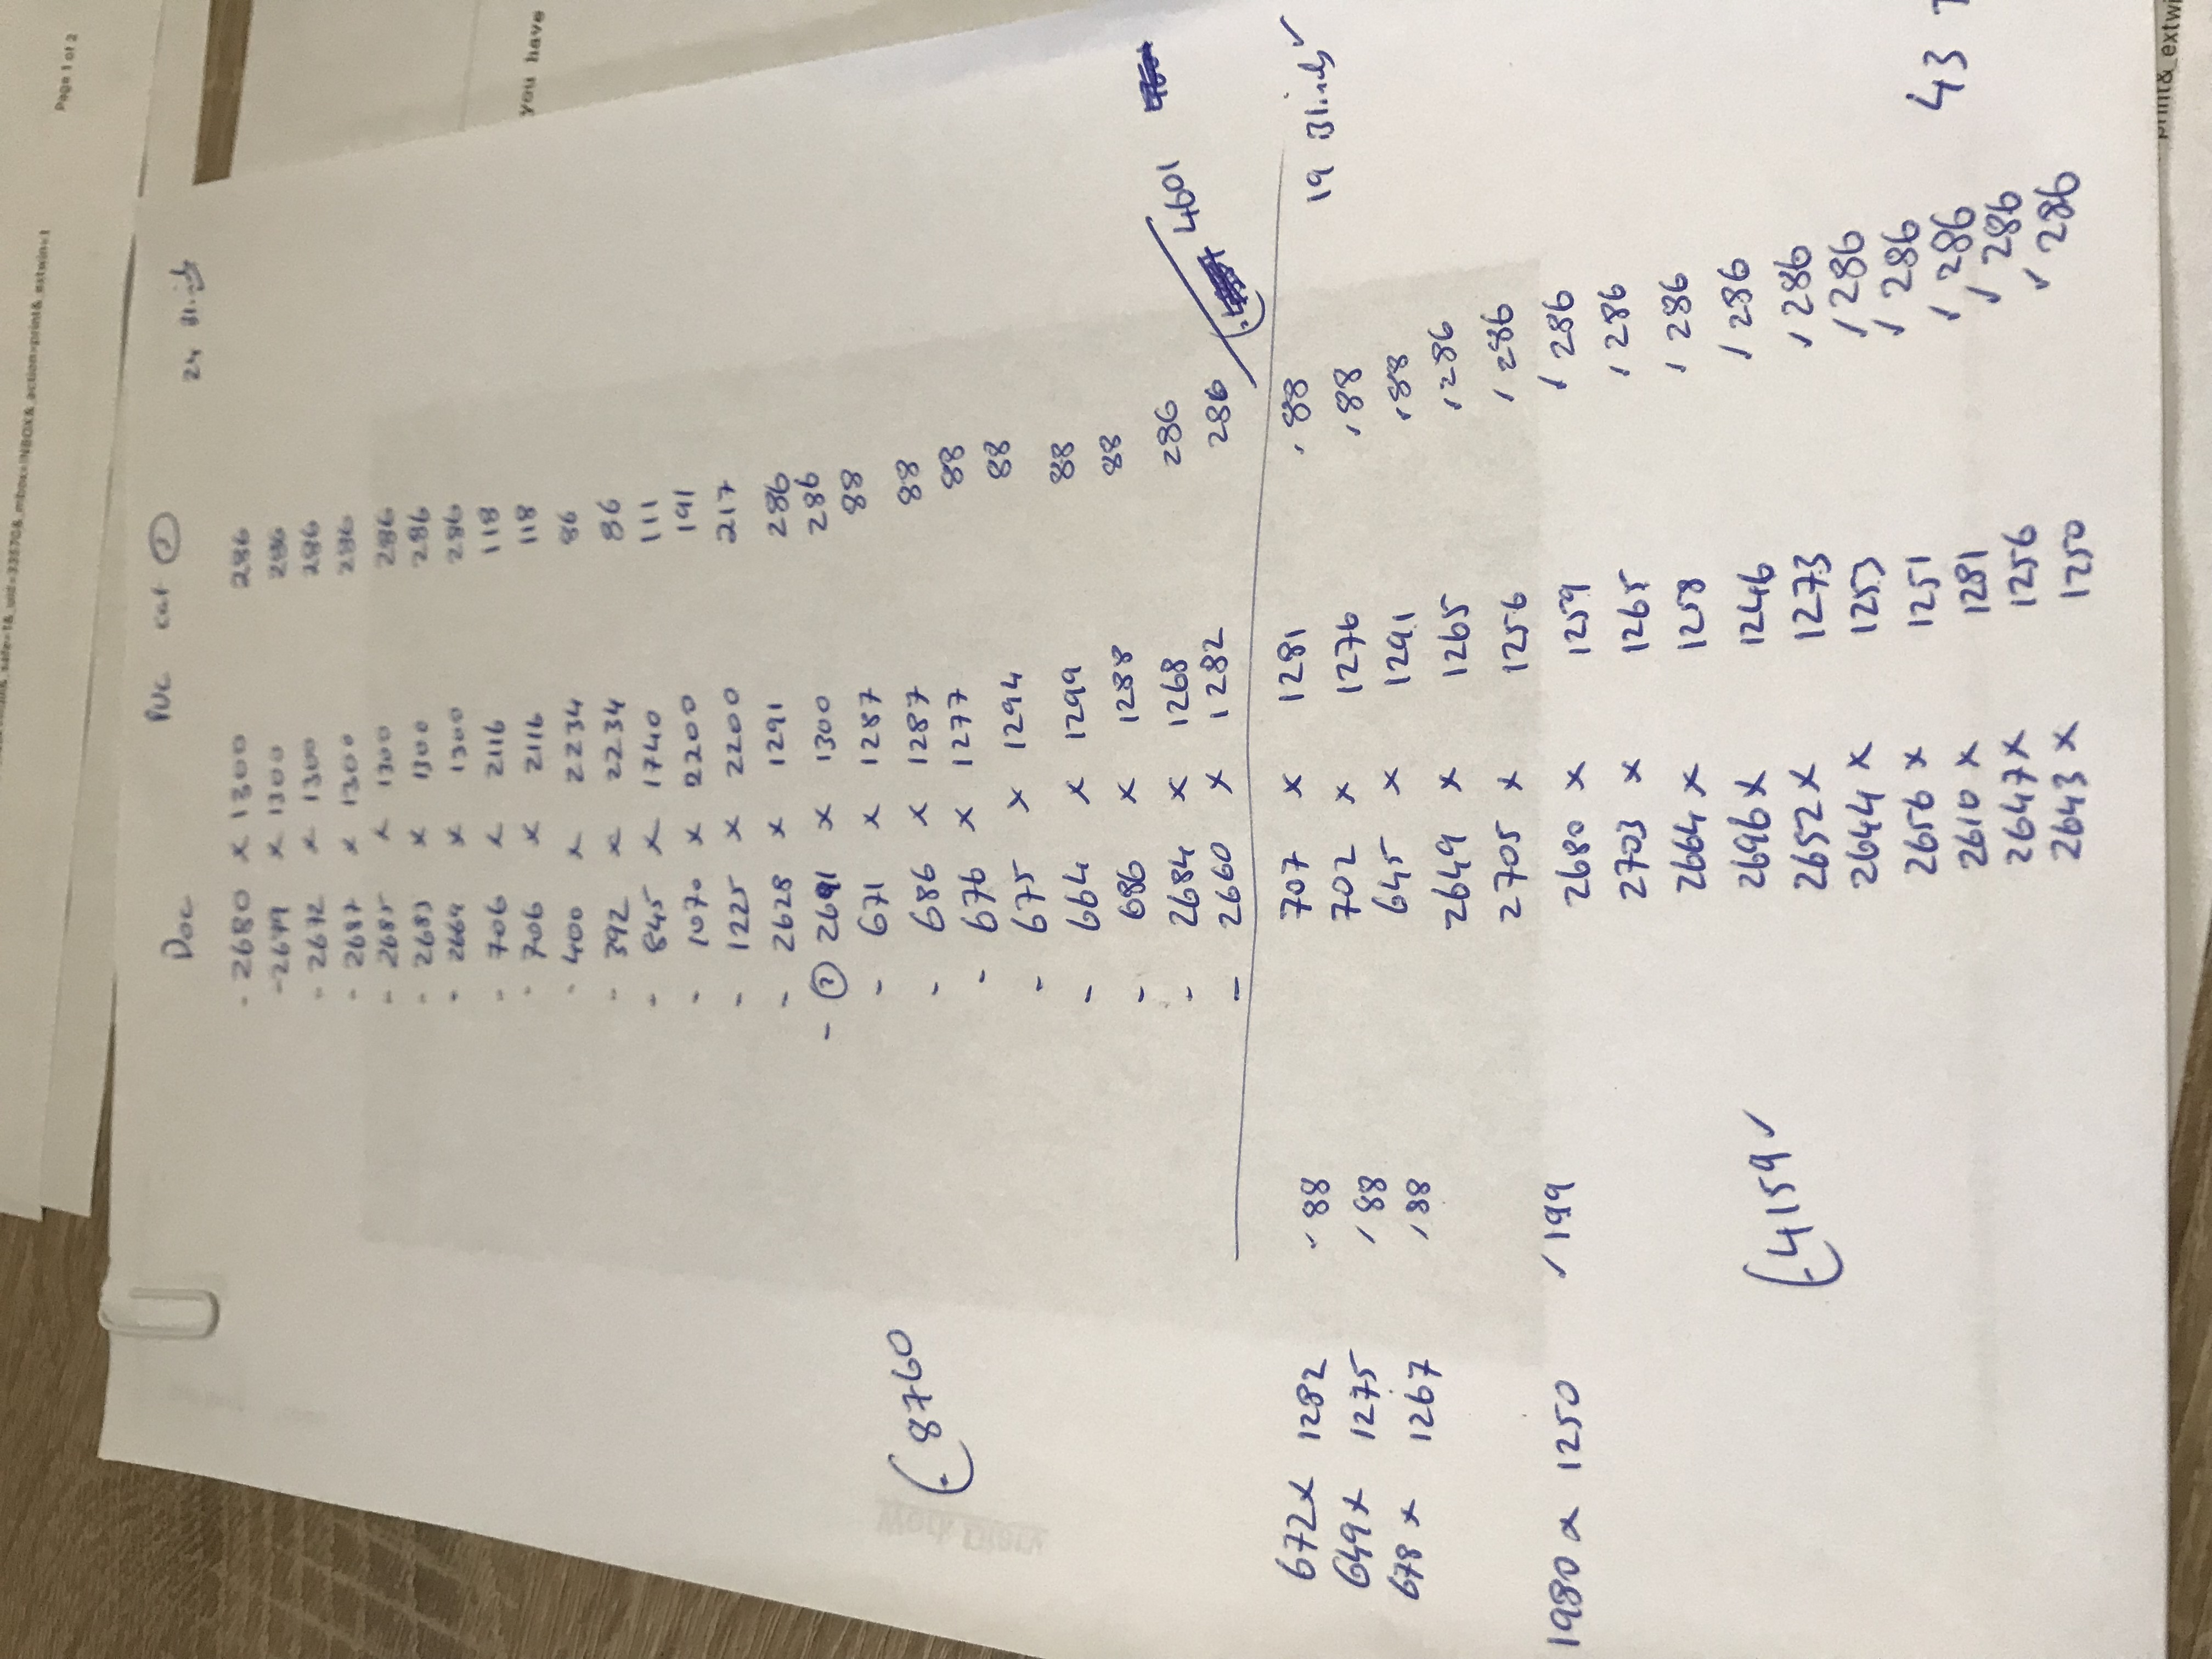 Page 1 of 2
you have
Doc PVC cat ② 24 Blinds
- 2680 x 1300 286
- 2679 x 1300 286
- 2672 x 1300 286
- 2687 x 1300 286
- 2685 x 1300 286
- 2683 x 1300 286
- 2669 x 1300 286
- 706 x 2116 118
- 706 x 2116 118
- 400 x 2234 86
- 392 x 2234 86
- 845 x 1740 111
- 1070 x 2200 191
- 1225 x 2200 217
- 2628 x 1291 286
- ② 2691 x 1300 286
- 671 x 1287 88
- 686 x 1287 88
- 676 x 1277 88
- 675 x 1294 88
- 664 x 1299 88
- 686 x 1288 88
- 2684 x 1268 286
- 2660 x 1282 286
4601
(. 8760
19 Blinds ✓
672 x 1282 ✓ 88 707 x 1281 ✓ 88
649 x 1275 ✓ 88 702 x 1276 ✓ 88
678 x 1267 ✓ 88 645 x 1291 ✓ 88
2649 x 1265 ✓ 286
2705 x 1256 ✓ 286
1980 x 1250 ✓ 199 2680 x 1259 ✓ 286
2703 x 1265 ✓ 286
2664 x 1258 ✓ 286
2696 x 1246 ✓ 286
(. 4159 ✓ 2652 x 1273 ✓ 286
2644 x 1253 ✓ 286
2656 x 1251 ✓ 286
2610 x 1281 ✓ 286
2647 x 1256 ✓ 286
2643 x 1250 ✓ 286
43
print&_extwi